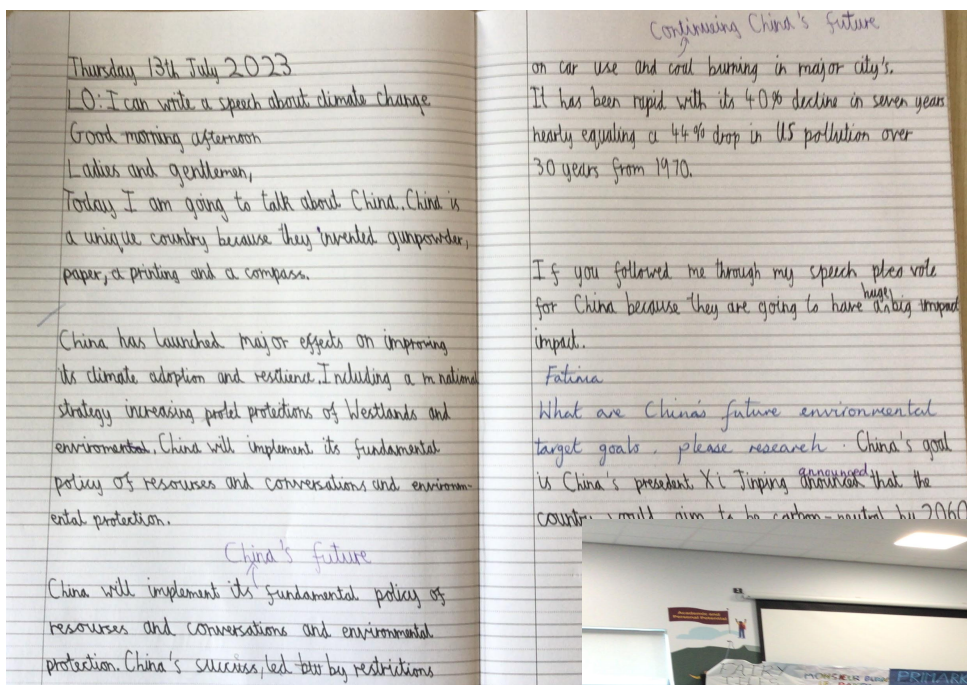 Thursday 13th July 2023
LO: I can write a speech about climate change
Good morning afternoon
Ladies and gentlemen,
Today I am going to talk about China. China is
a unique country because they invented gunpowder,
paper, a printing and a compass.
China has launched major effects on improving
its climate adoption and resilience. Including a m national
strategy increasing protet protections of Westlands and
enviromental. China will implement its fundamental
policy of resourses and conversations and environm-
ental protection.
China's future
China will implement its fundamental policy of
resourses and conversations and environmental
protection. China's success, led by restrictions
Continueing China's future
on car use and coal burning in major city's.
It has been rapid with its 40% decline in seven years
nearly equaling a 44% drop in US pollution over
30 years from 1970.
If you followed me through my speech plea vote
huge
for China because they are going to have a big impact
impact.
Fatima
What are China's future environmental
target goals, please research. China's goal
announced
is China's presedent, Xi Jinping anounced that the
country would aim to be carbon-neutral by 2060
PRIMARK